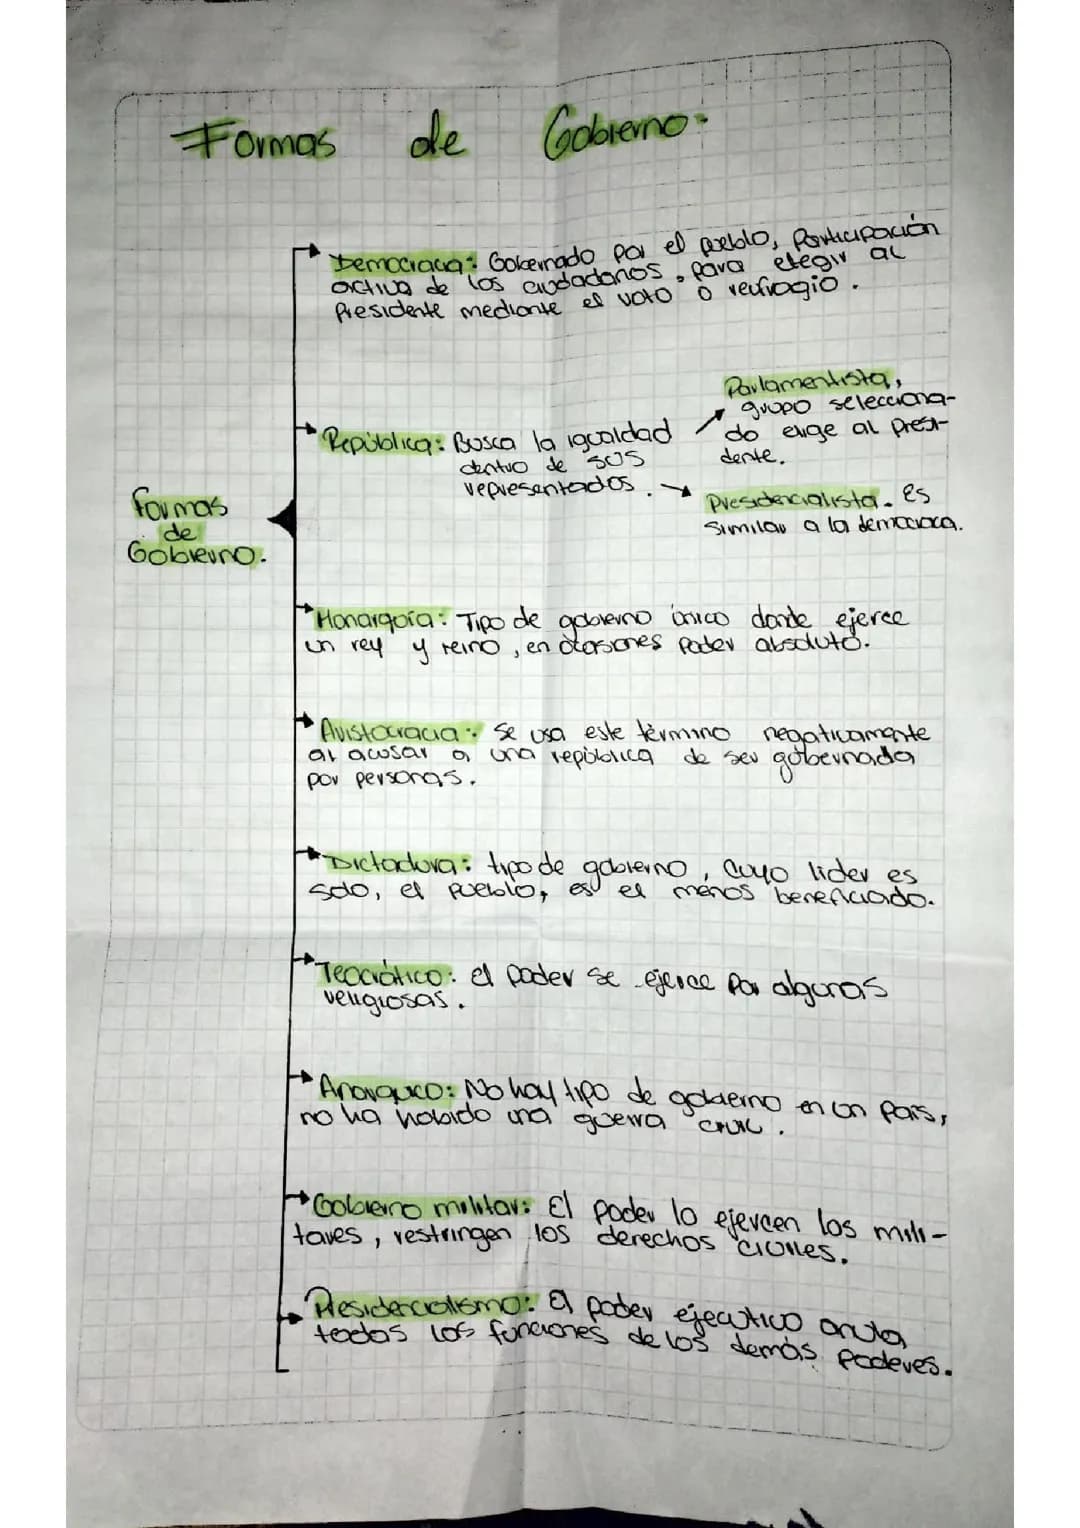 Formas de Gobierno.
Democracia: Gobernado por el pueblo, Participación
activa de los ciudadanos, para elegir al
Presidente mediante el voto o reufragio.
Parlamentista,
grupo selecciona-
do elige al presi-
dente.
República: Busca la igualdad
dentro de sus
representados.
Presidencialista. Es
similar a la democraca.
Formas
de
Gobierno.
Monarquía: Tipo de gobierno único donde ejerce
un rey y reino, en ocasiones poder absoluto.
Aristocracia: Se usa este término negativamente
al acusar a una república de ser gobernada
por personas.
Dictadura: tipo de gobierno, cuyo lider es
solo, el pueblo, es el menos beneficiado.
Teocrático: el poder se ejerce por algunas
religiosas.
Anarquico: No hay tipo de gobierno en un país,
no ha habido una guerra civil.
Gobierno militar: El poder lo ejercen los mili-
tares, restringen los derechos civiles.
Presidencialismo: El poder ejecutivo anula
todas los funciones de los demás poderes.